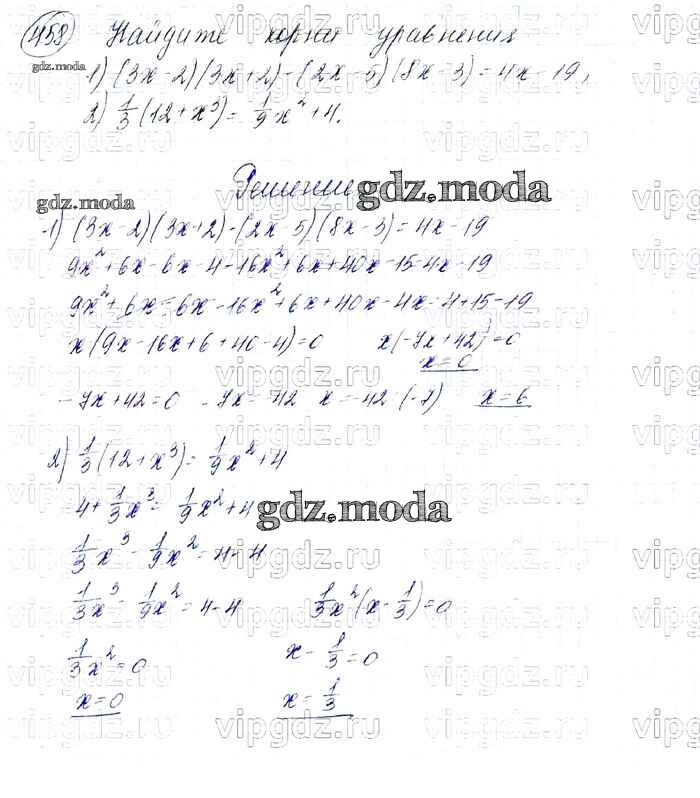 458 Найдите корни уравнения
gdz.moda
1) (3x-2)(3x+2)-(2x-5)(8x-3)=4x-19,
2) 1/3(12+x³)=1/9x²+4.
Решение gdz.moda
gdz.moda
1) (3x-2)(3x+2)-(2x-5)(8x-3)=4x-19
9x²+6x-6x-4-16x²+6x+40x-15-4x-19
9x²+6x=6x-16x²+6x+40x-4x-4+15-19
x(9x-16x+6+40-4)=0 x(-7x+42)=0
x=0
-7x+42=0 -7x=-42 x=-42(-7) x=6
2) 1/3(12+x³)=1/9x²+4
4+1/3x³=1/9x²+4 gdz.moda
1/3x³-1/9x²=4-4
1/3x³-1/9x²=4-4 1/3x²(x-1/3)=0
1/3x²=0 x-1/3=0
x=0 x=1/3
vipgdz.ru